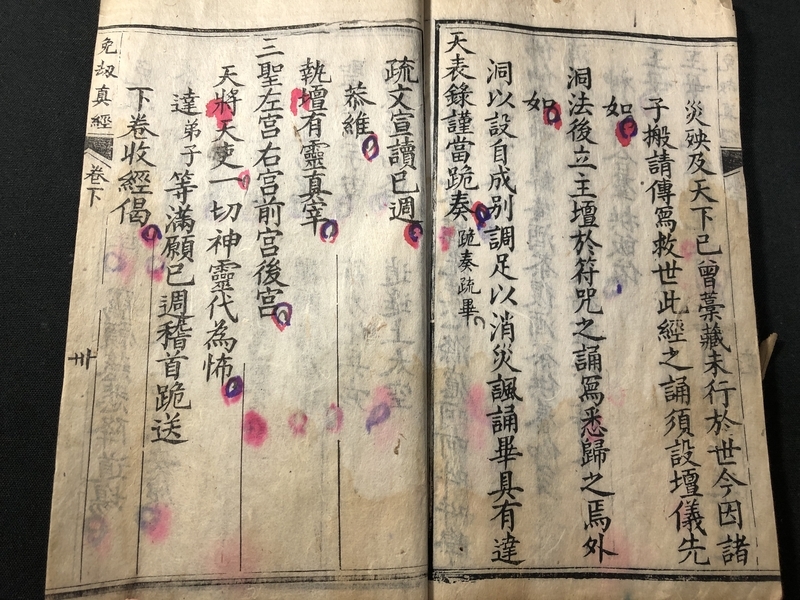 災殃及天下已曾藁藏未行於世今因諸
子搬請傳寫救世此經之誦須設壇儀先
如
洞法後立主壇於符咒之誦寫悉歸之焉外
如
洞以設自成別調足以消災諷誦畢具有達
天表錄謹當跪奏 跪奏疏畢
疏文宣讀已週
恭維
執壇有靈真宰
三聖左宮右宮前宮後宮
天將天吏一切神靈代為怖
達弟子等滿願已週稽首跪送
下卷收經偈
免劫真經
卷下
卅